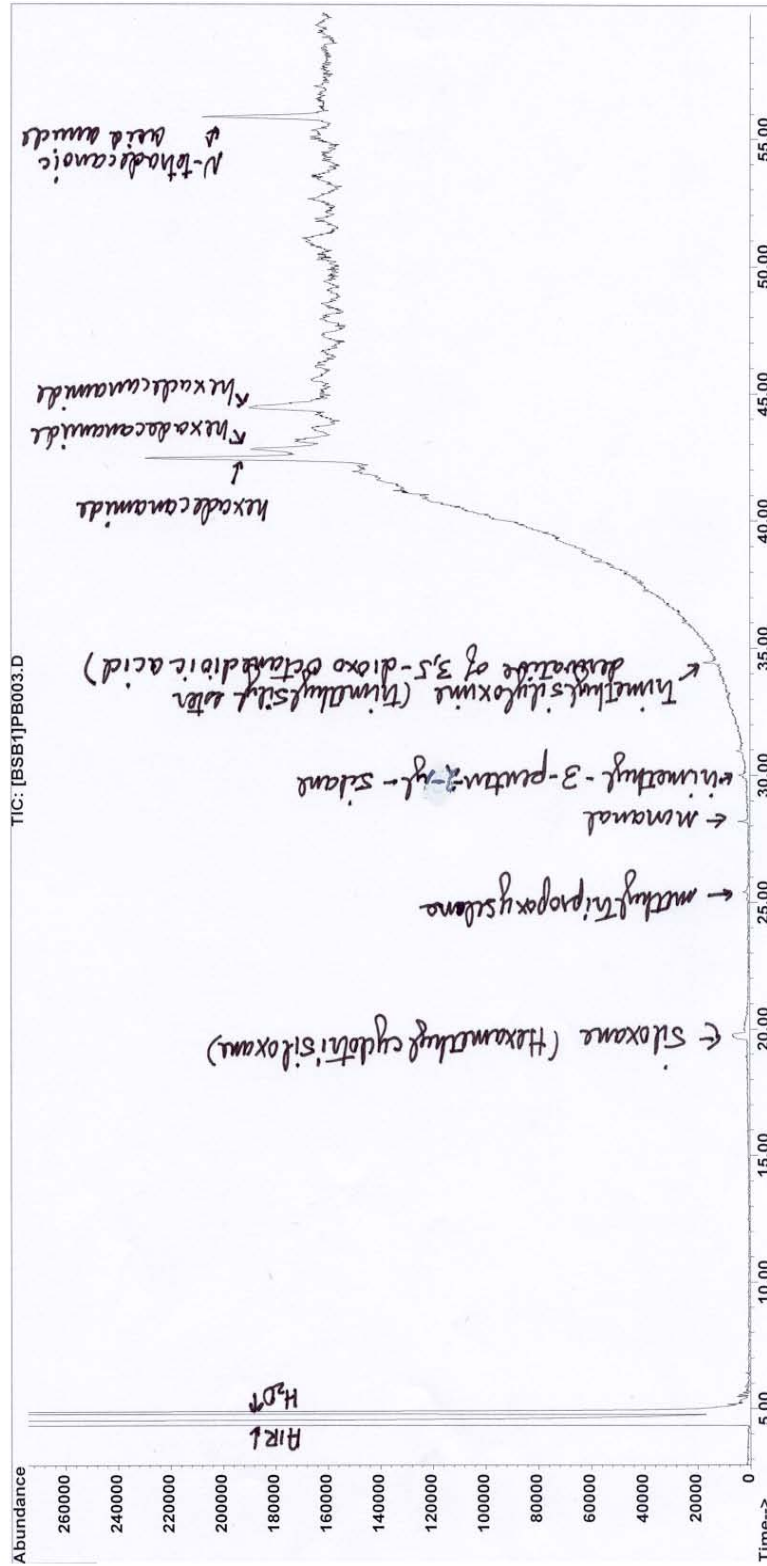 Abundance
TIC: [BSB1]PB003.D
260000
240000
220000
200000
180000
160000
140000
120000
100000
80000
60000
40000
20000
0
Time-->
5.00
10.00
15.00
20.00
25.00
30.00
35.00
40.00
45.00
50.00
55.00
AIR↓
H₂O↑
← Siloxane (Hexamethyl cyclotrisiloxane)
← methyltripropoxyselane
← nonanal
← trimethyl-3-penten- -yl-silane
Trimethylsilyloxime (trimethylsilyl ester
derivative of 3,5-dioxo octanedioic acid)
hexadecanamide
hexadecanamide
hexadecanamide
N-tetradecanoic
acid amide